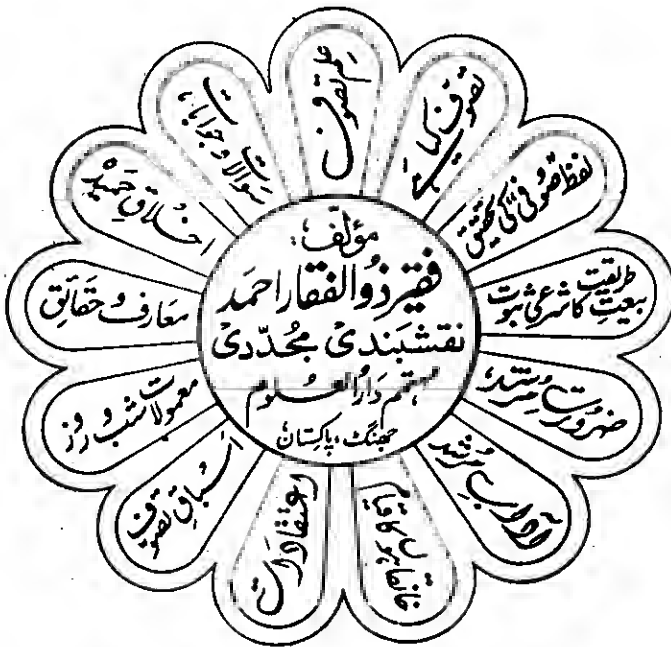 مؤلف:
فقیر ذُوالفقار احمد
نقشبندی مجُدّدی
مہتمم دَارُالعلوم
جھنگ، پاکستان
علم تصوف
تصوف کیا ہے
لفظ صُوفی کی تحقیق
بیعتِ طریقت کا شرعی ثبوت
ضرورتِ مُرشد
آدابِ مُرشد
خانقاہوں کا قیام
اعتقادات
اسباقِ تصوف
معمولات شب و روز
معارف و حقائق
اخلاقِ حمیدہ
سوالات و جوابات